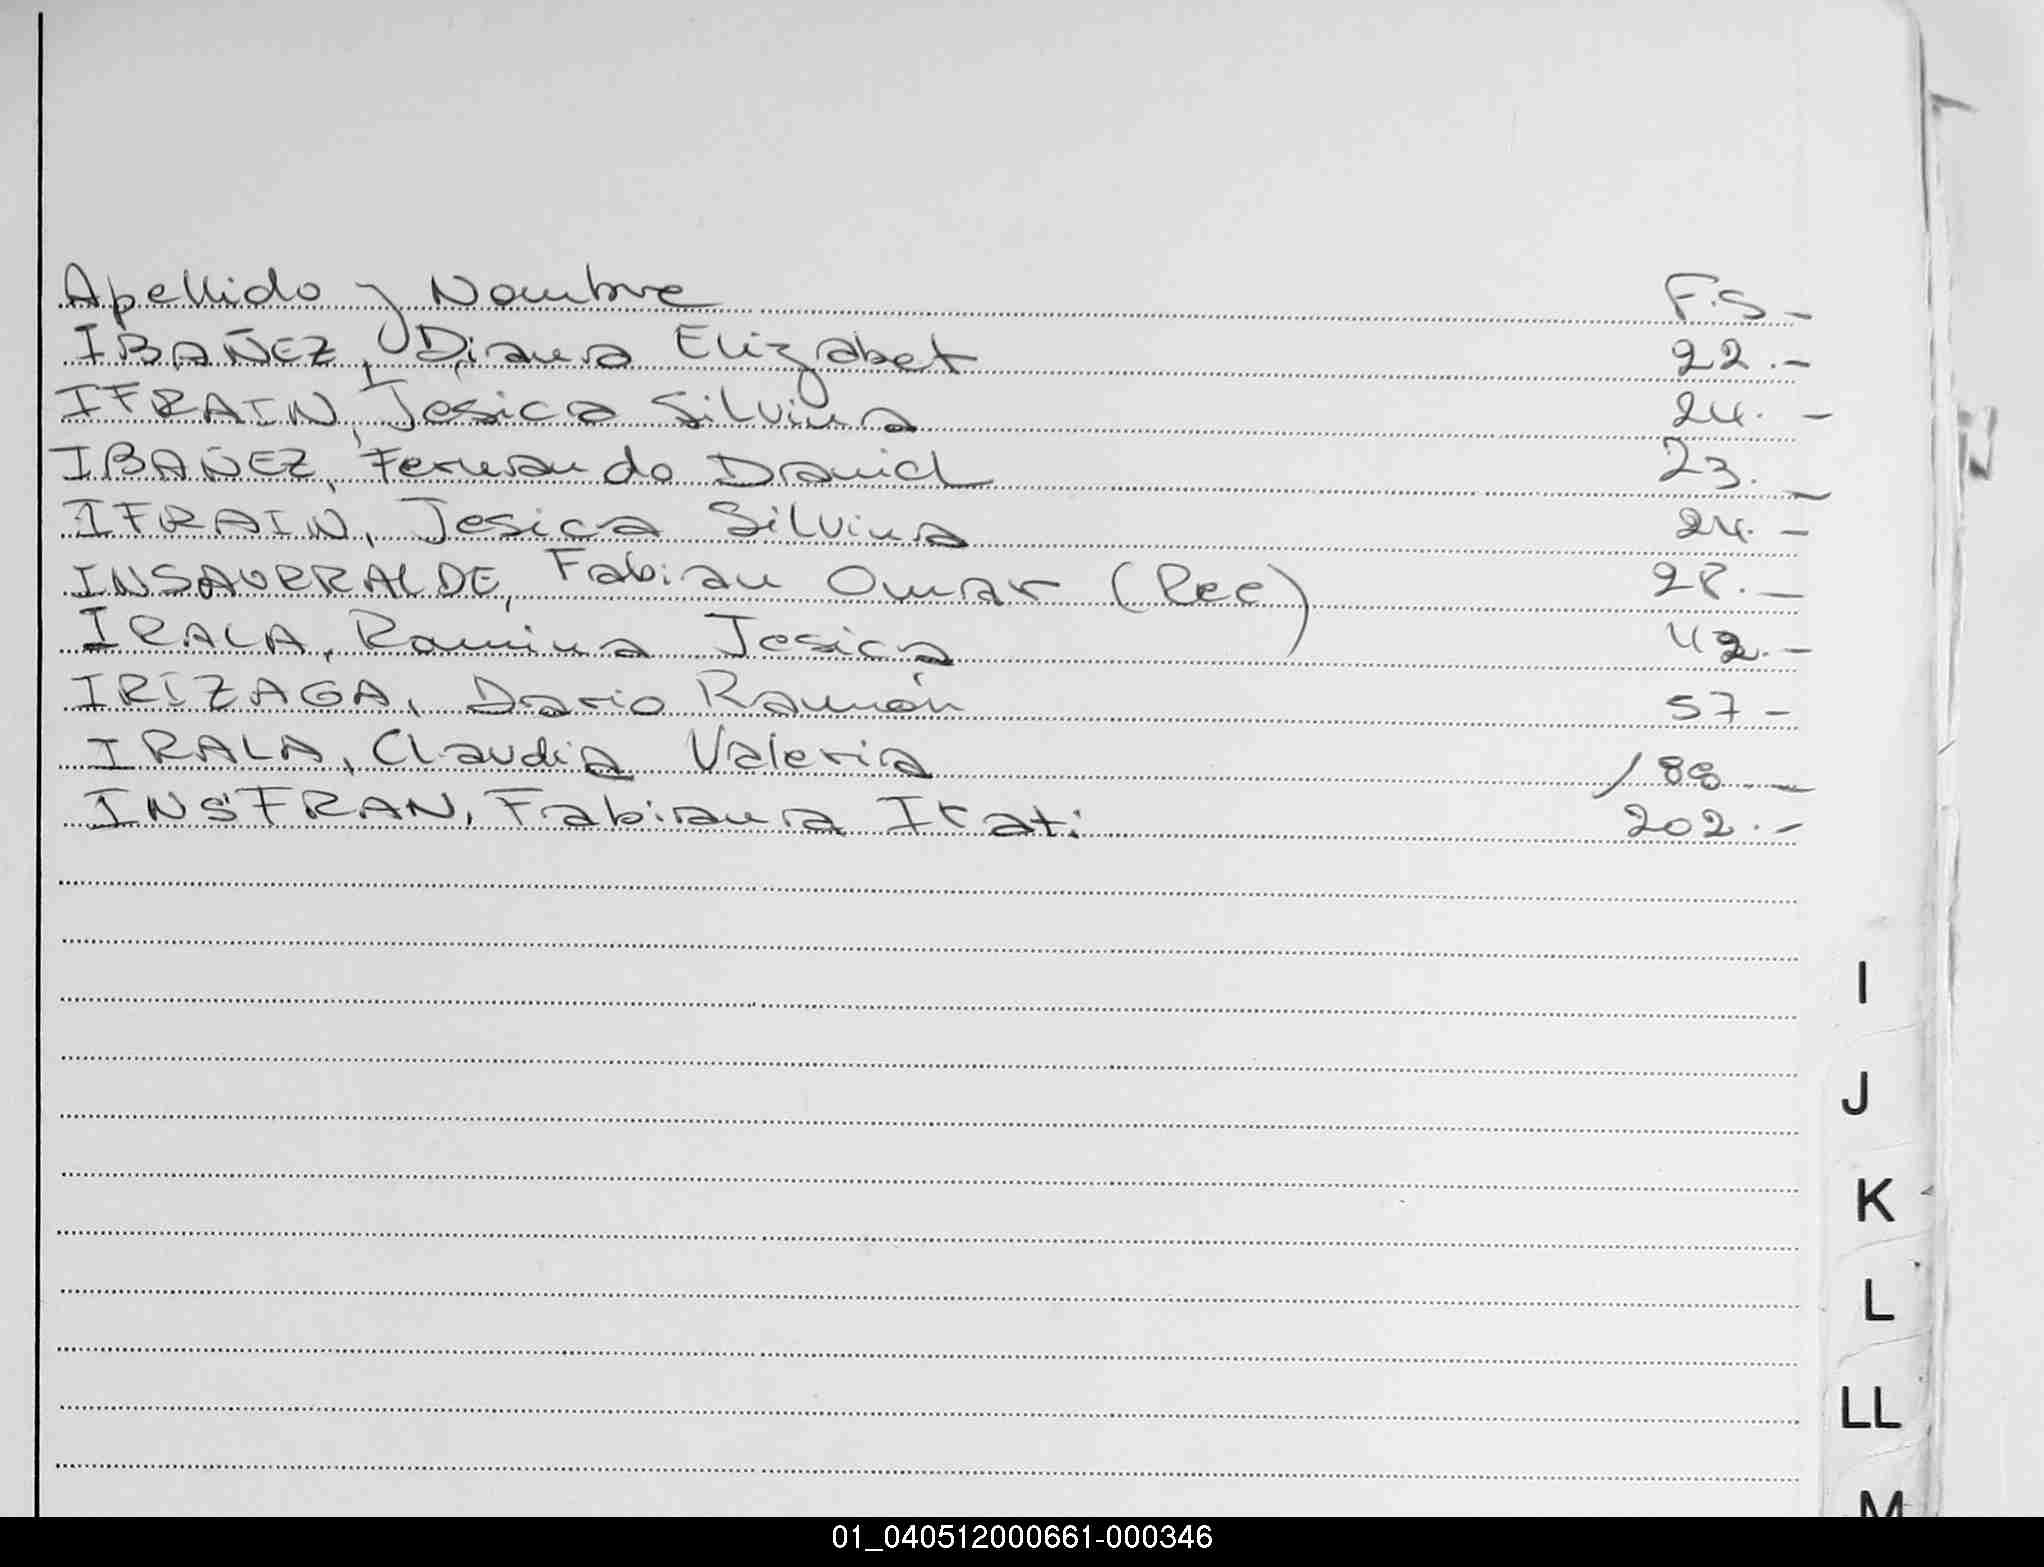 Apellido y Nombre F.S-
IBAÑEZ, Diana Elizabet 22.-
IFRAIN, Jesica Silvina 24.-
IBAÑEZ, Fernando David 23.-
IFRAIN, Jesica Silvina 24.-
INSAURRALDE, Fabian Omar (Rec) 28.-
IRALA, Romina Jesica 42.-
IRIZAGA, Dario Ramón 57-
IRALA, Claudia Valeria 188.-
INSFRAN, Fabiana Itati 202.-
I
J
K
L
LL
M
01_040512000661-000346